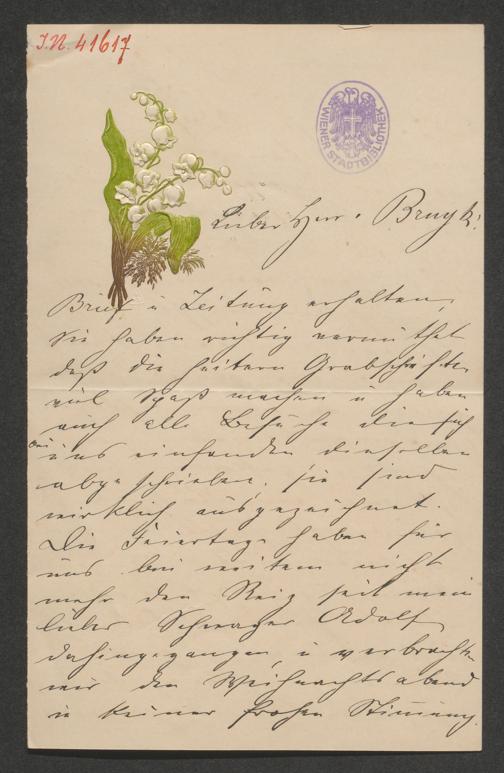 I.N. 41617
WIENER STADTBIBLIOTHEK
Lieber Herr v. Bruyk!
Brief u Zeitung erhalten,
Sie haben richtig vermuthet
daß die heitern Grabschriften
viel Spaß machen u haben
auch alle Besuche die sich
bei uns einfanden dieselben
abgeschrieben, sie sind
wirklich ausgezeichnet.
Die Feiertage haben für
uns bei weitem nicht
mehr den Reiz seit mein
lieber Schwager Adolf
dahingegangen, u verbrachten
wir den Weihnachtsabend
in keiner frohen Stimmung.